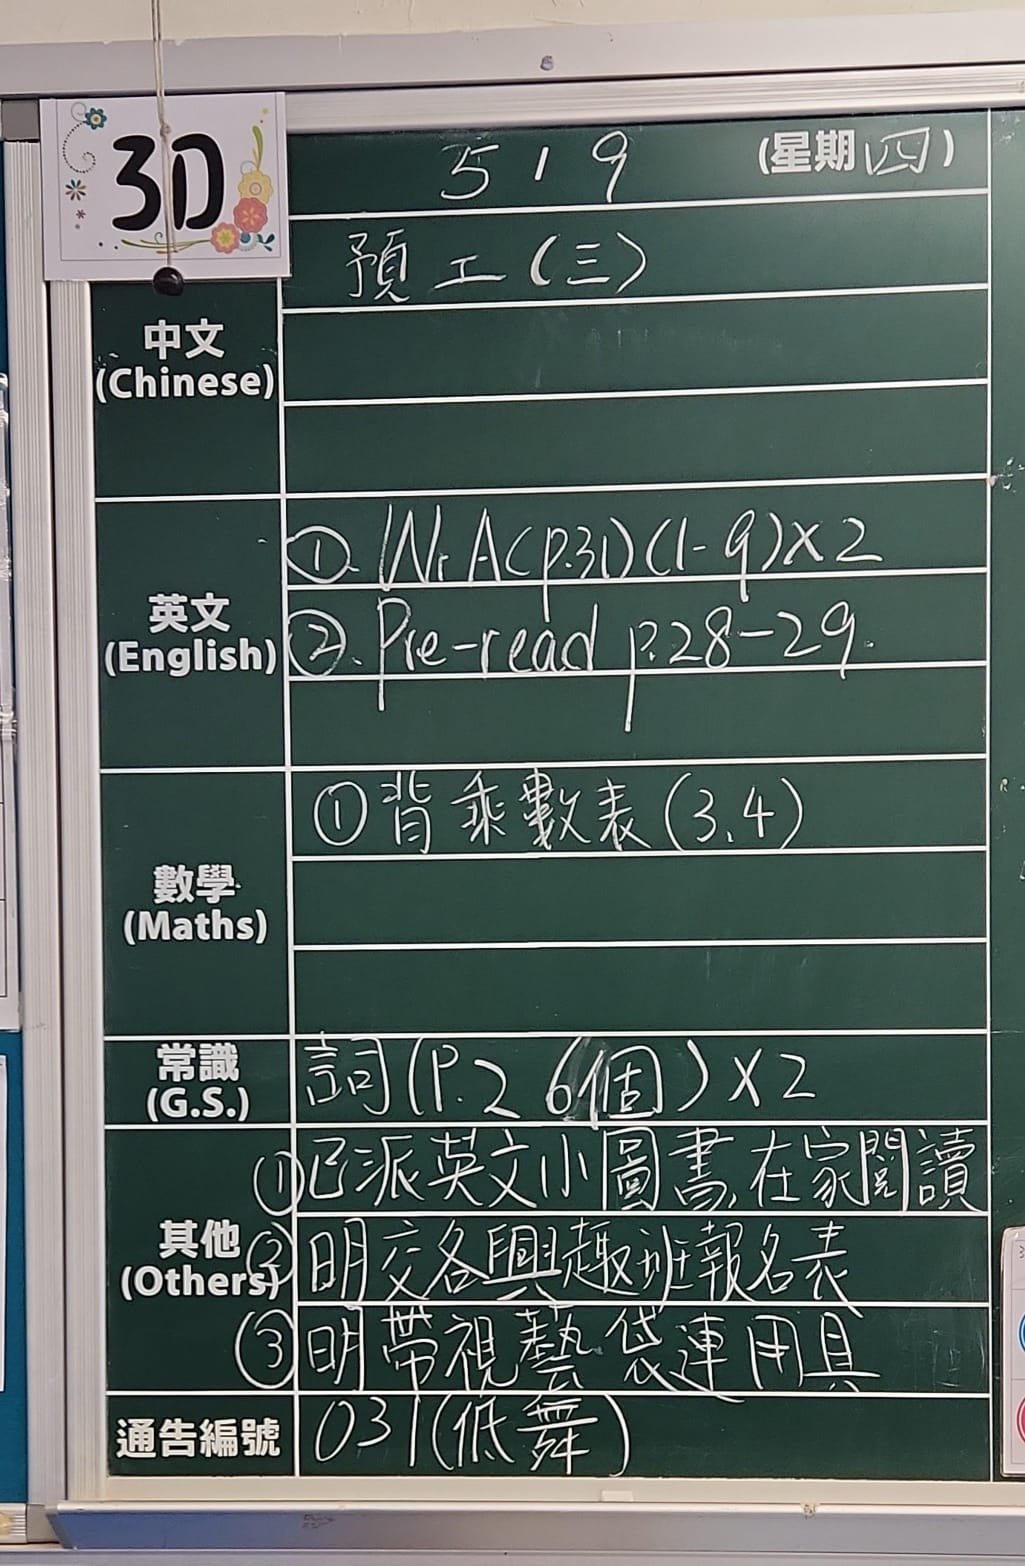 3D
5 1 9 (星期四)
預工(三)
中文
(Chinese)
英文
(English)
① W. A(p.31)(1-9)×2
②. Pre-read p.28-29.
數學
(Maths)
①背乘數表(3,4)
常識
(G.S.)
詞(P.2 6個)×2
其他
(Others)
①已派英文小圖書,在家閱讀
②明交各興趣班報名表
③明帶視藝袋連用具
通告編號
031(低舞)